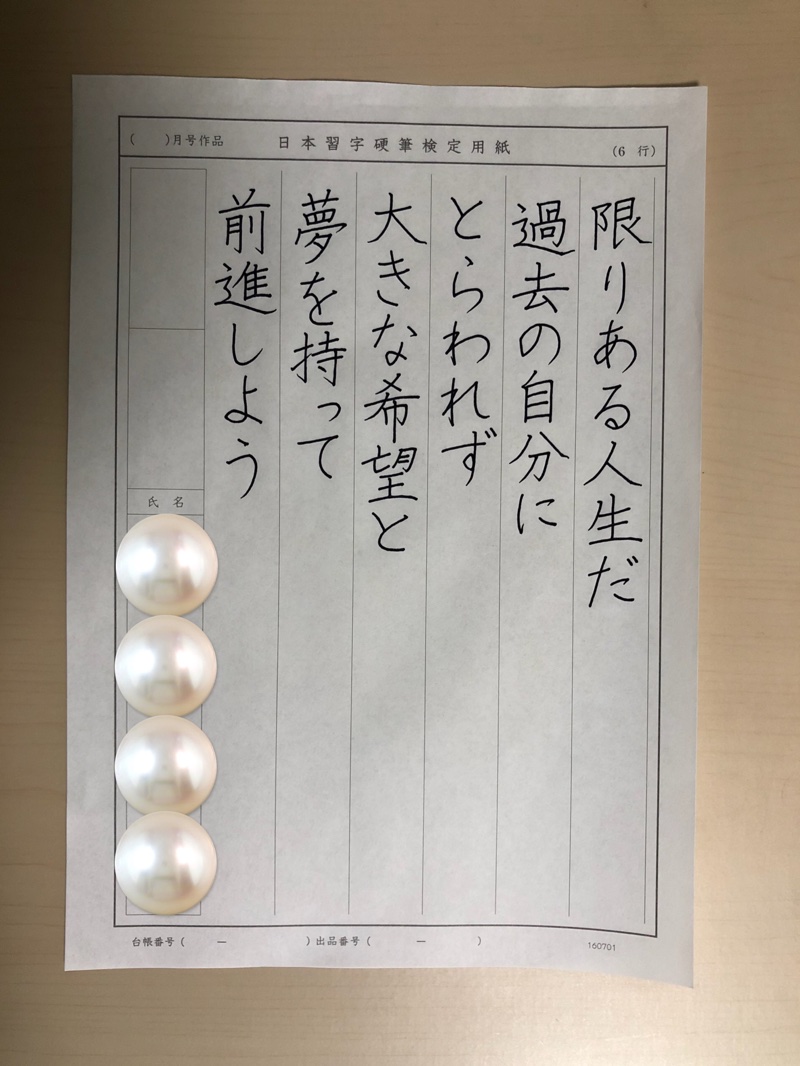 （　　）月号作品　日本習字硬筆検定用紙　（6 行）
限りある人生だ
過去の自分に
とらわれず
大きな希望と
夢を持って
前進しよう
氏 名
台帳番号（　　－　　　　）出品番号（　　－　　）　160701